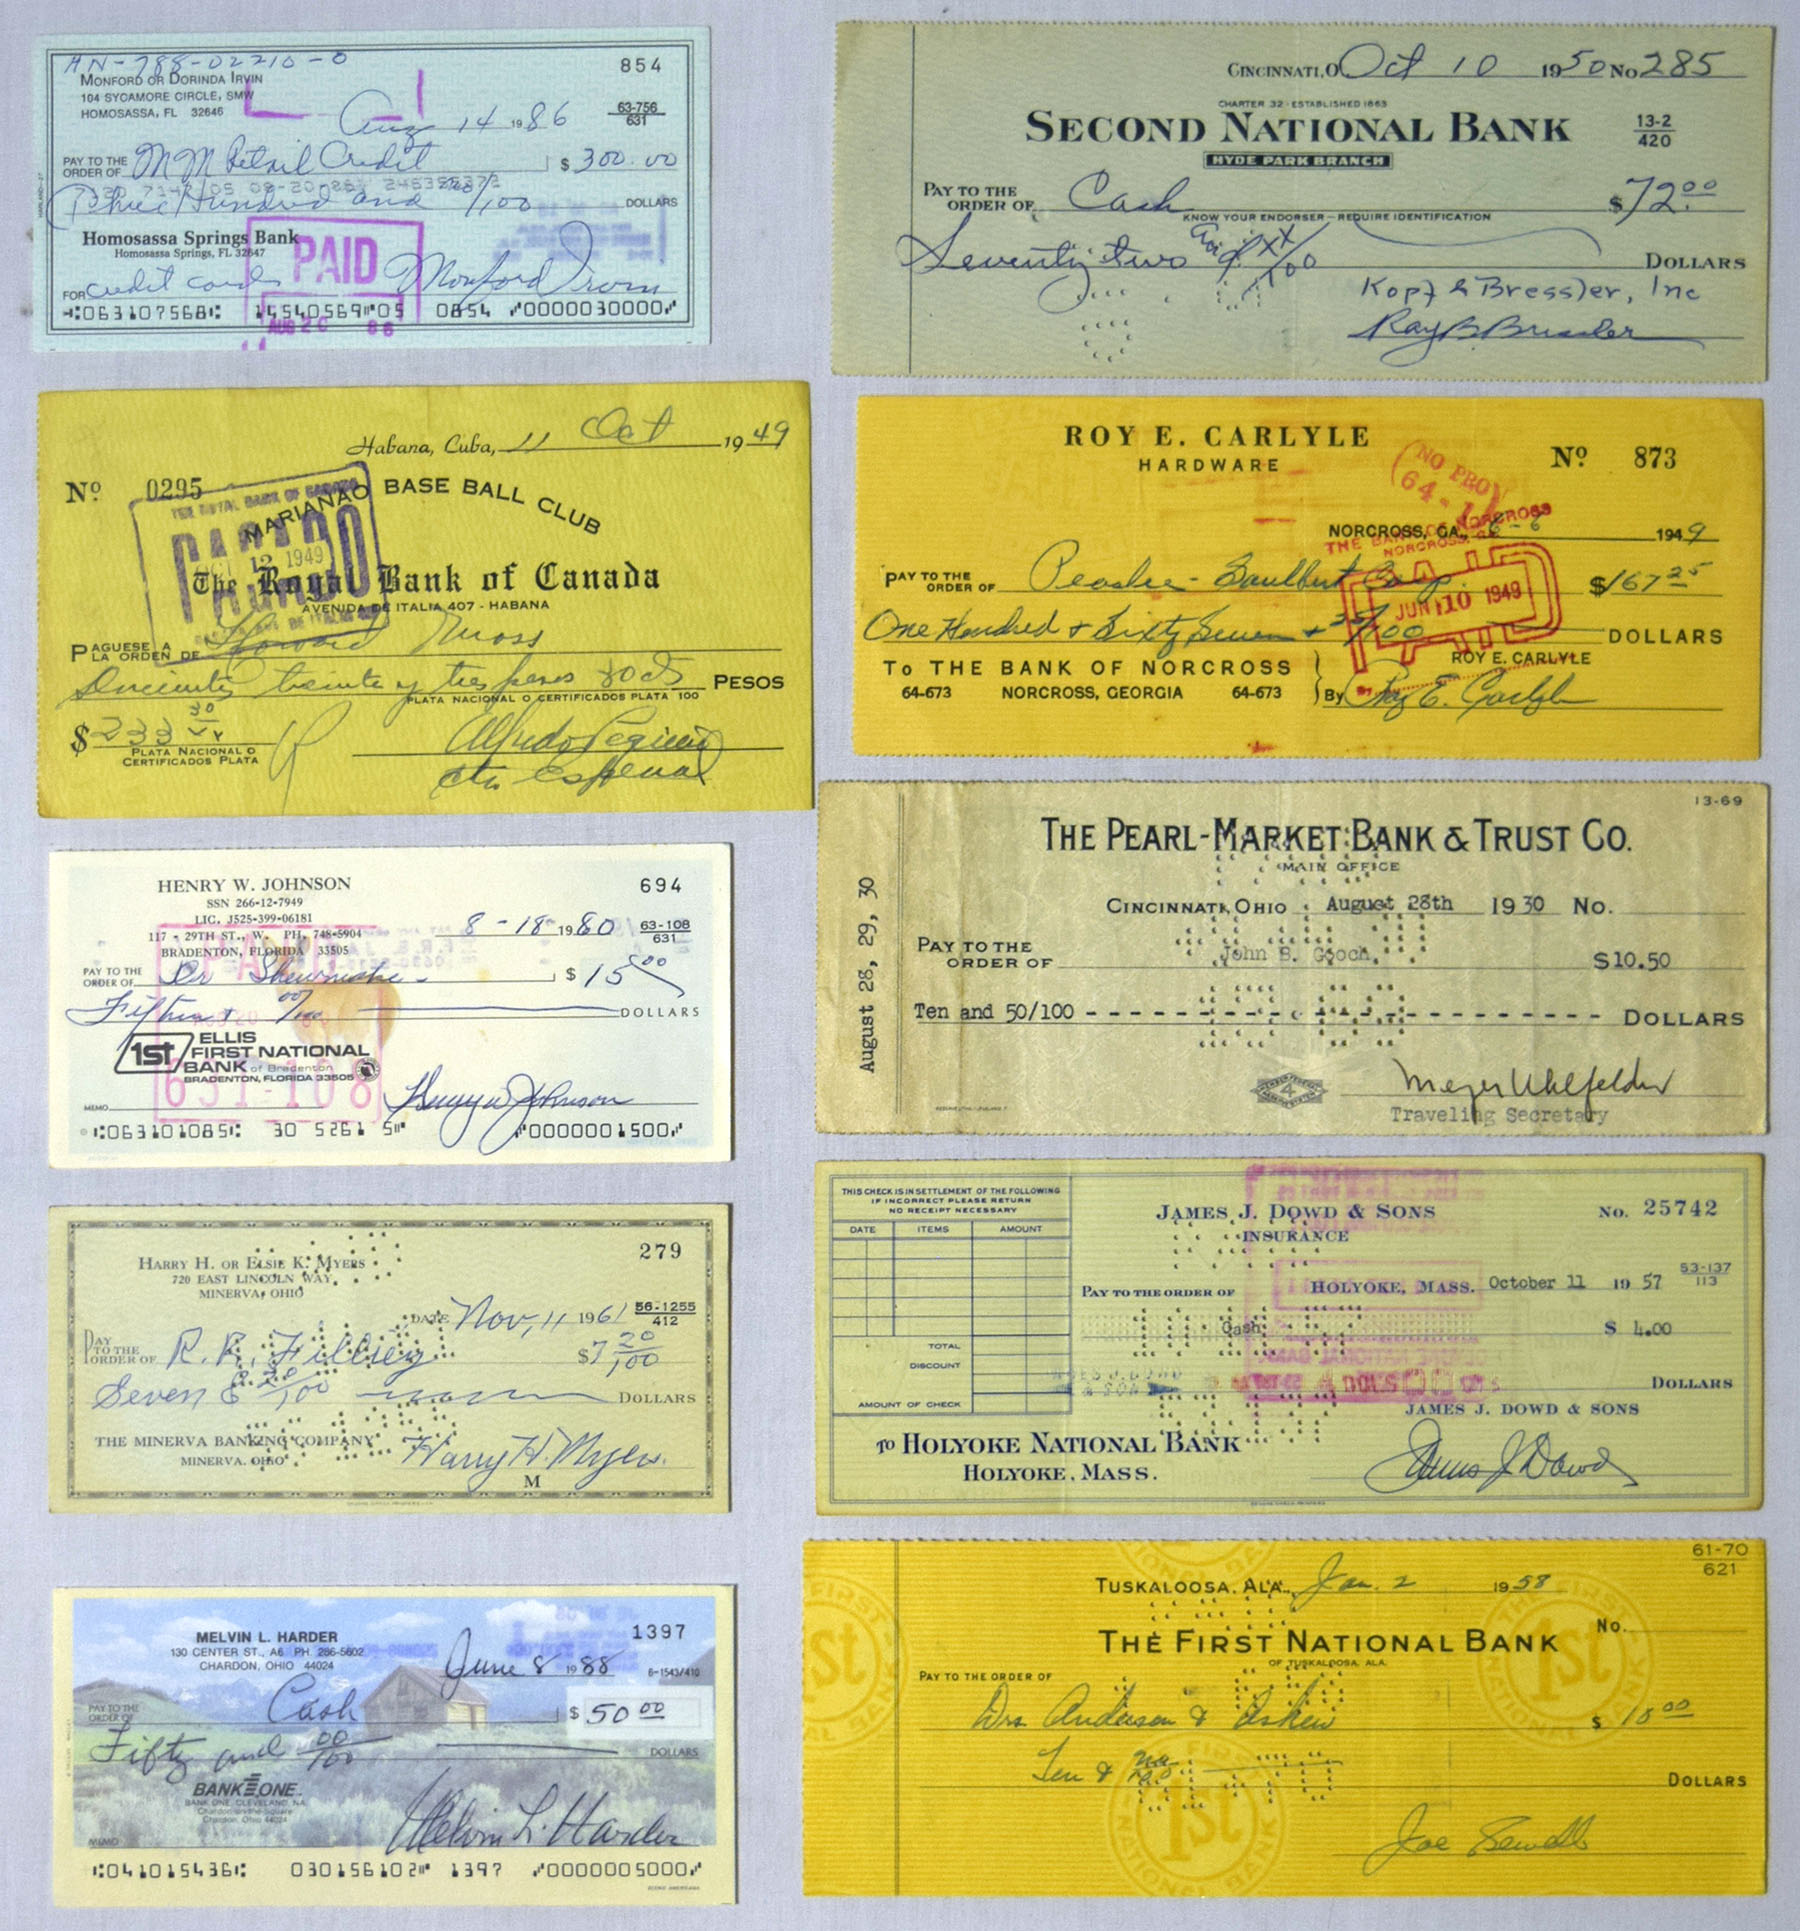 AN-788-02210-0
MONFORD OR DORINDA IRVIN
854
104 SYCAMORE CIRCLE, SMW
HOMOSASSA, FL 32646
Aug 14 1986
63-756
631
PAY TO THE ORDER OF MM Retail Credit $ 300.00
Three Hundred and no/100 DOLLARS
Homosassa Springs Bank
Homosassa Springs, FL 32647
PAID
AUG 20 86
FOR credit cards Monford Irvin
063107568 14540569 05 0854 0000030000
CINCINNATI, O. Oct 10 1950 No 285
CHARTER 32 · ESTABLISHED 1863
SECOND NATIONAL BANK
13-2
420
HYDE PARK BRANCH
PAY TO THE ORDER OF Cash $72.00
KNOW YOUR ENDORSER — REQUIRE IDENTIFICATION
Seventy two & xx/100 DOLLARS
Kopf & Bressler, Inc
Ray B Bressler
Habana, Cuba, 11 Oct 1949
Nº 0295
MARIANAO BASE BALL CLUB
THE ROYAL BANK OF CANADA
PAGADO
OCT 12 1949
The Royal Bank of Canada
AVENIDA DE ITALIA 407 - HABANA
PAGUESE A LA ORDEN DE Howard Moss
Doscientos treinta y tres pesos 30 cts PESOS
PLATA NACIONAL O CERTIFICADOS PLATA 100
$ 233 30
PLATA NACIONAL O
CERTIFICADOS PLATA
Alfredo Pequeño
cta Especial
ROY E. CARLYLE
HARDWARE
Nº 873
NO PRO
64-
NORCROSS, GA., 6-6 1949
THE BANK OF NORCROSS
NORCROSS, GA.
PAY TO THE ORDER OF Peaslee-Gaulbert Corp. $167 25
PAID
JUN 10 1949
One Hundred + Sixty Seven + 25/100 DOLLARS
TO THE BANK OF NORCROSS
64-673 NORCROSS, GEORGIA 64-673
ROY E. CARLYLE
By Roy E. Carlyle
HENRY W. JOHNSON
694
SSN 266-12-7949
LIC. J525-399-06181
117 - 29TH ST., W. PH. 748-5904
BRADENTON, FLORIDA 33505
8-18- 1980
63-108
631
PAY TO THE ORDER OF Dr $ 15 00
Fifteen + 00/100 DOLLARS
1ST
ELLIS
FIRST NATIONAL
BANK of Bradenton
BRADENTON, FLORIDA 33505
631-108
MEMO Henry W Johnson
063101085 30 5261 5 0000001500
13-69
THE PEARL-MARKET BANK & TRUST CO.
MAIN OFFICE
August 28, 29, 30
CINCINNATI, OHIO August 28th 1930 No.
PAY TO THE ORDER OF John B. Gooch, $10.50
Ten and 50/100 - - - - - - - - - - DOLLARS
MEMBER FEDERAL RESERVE SYSTEM 4
Meyer Uhlfelder
Traveling Secretary
HARRY H. OR ELSIE K. MYERS
279
720 EAST LINCOLN WAY
MINERVA, OHIO
DATE Nov, 11 1961
56-1255
412
PAY TO THE ORDER OF R. R. $7 20/100
Seven & 20/100 DOLLARS
THE MINERVA BANKING COMPANY
MINERVA, OHIO
Harry H. Myers.
M
THIS CHECK IS IN SETTLEMENT OF THE FOLLOWING
IF INCORRECT PLEASE RETURN
NO RECEIPT NECESSARY
DATE ITEMS AMOUNT
TOTAL
DISCOUNT
AMOUNT OF CHECK
JAMES J. DOWD & SONS
INSURANCE
No. 25742
PAY TO THE ORDER OF HOLYOKE, MASS. October 11 1957
53-137
113
Cash $ 4.00
DOLLARS
JAMES J. DOWD & SONS
TO HOLYOKE NATIONAL BANK
HOLYOKE, MASS.
James J Dowd
MELVIN L. HARDER
1397
130 CENTER ST., A6 PH. 286-5602
CHARDON, OHIO 44024
June 8 1988
6-1543/410
PAY TO THE ORDER OF Cash $ 50 00
Fifty and 00/100 DOLLARS
BANK ONE
BANK ONE, CLEVELAND, NA
Chardon-on-the-Square
Chardon, Ohio 44024
MEMO Melvin L. Harder
041015436 030156102 1397 0000005000
61-70
621
TUSKALOOSA, ALA., Jan. 2 1958
No.
THE FIRST NATIONAL BANK
OF TUSKALOOSA, ALA.
PAY TO THE ORDER OF
Drs Anderson & Askew $ 10 00
Ten & no/100 DOLLARS
Joe Sewell